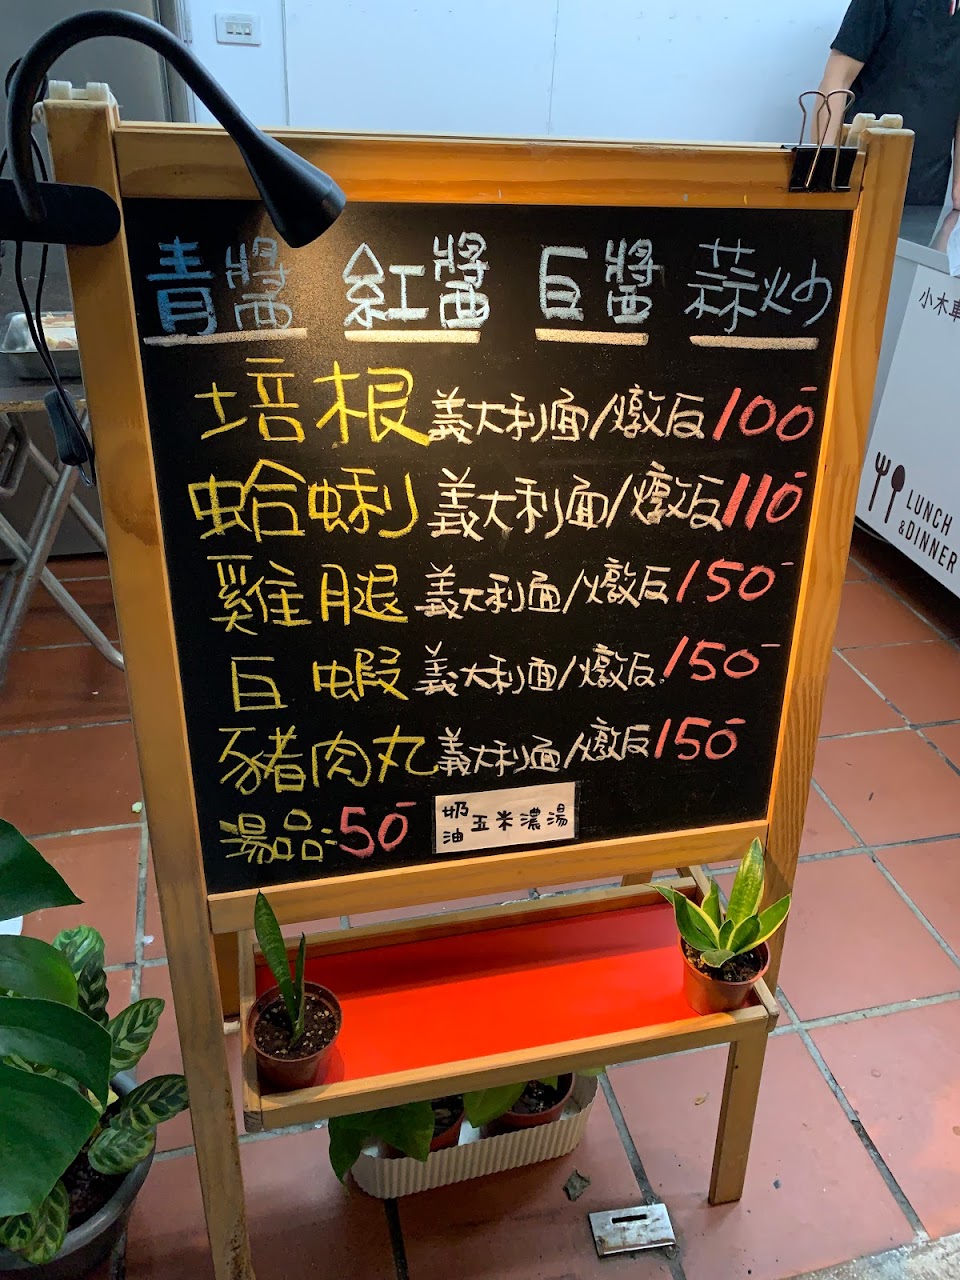 青醬 紅醬 白醬 蒜炒
培根義大利面/燉飯100
蛤蜊義大利面/燉飯110
雞腿義大利面/燉飯150
白蝦義大利面/燉飯150
豬肉丸義大利面/燉飯150
湯品:50
奶油玉米濃湯
小木車
LUNCH
&DINNER